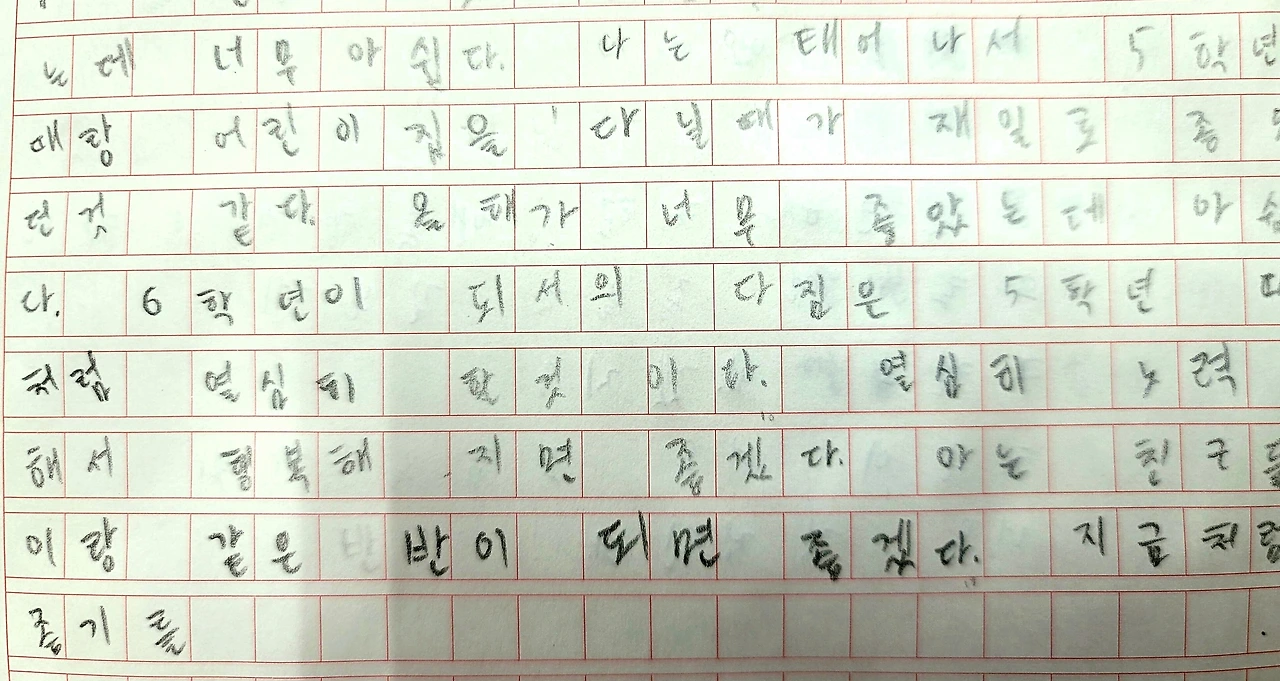 는데 너무 아쉽다. 나는 태어나서 5학년
때랑 어린이집을 다닐때가 재일로 좋았
던것 같다. 올해가 너무 좋았는데 아쉽
다. 6학년이 되서의 다짐은 5학년
처럼 열심히 할것이다. 열심히 노력
해서 행복해 지면 좋겠다. 아는 친구들
이랑 같은 반이 되면 좋겠다. 지금처럼
좋기를